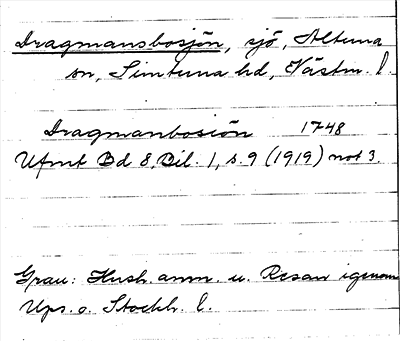 Dragmansbosjön, sjö, Altuna
sn, Simtuna hd, Västm. l.
Dragmanbosiön 1748
Ufmt Bd 8, Bil. 1, s. 9 (1919) not 3.
Grau: Hush. anm. u. Resan igenom
Ups. o. Stockh. l.